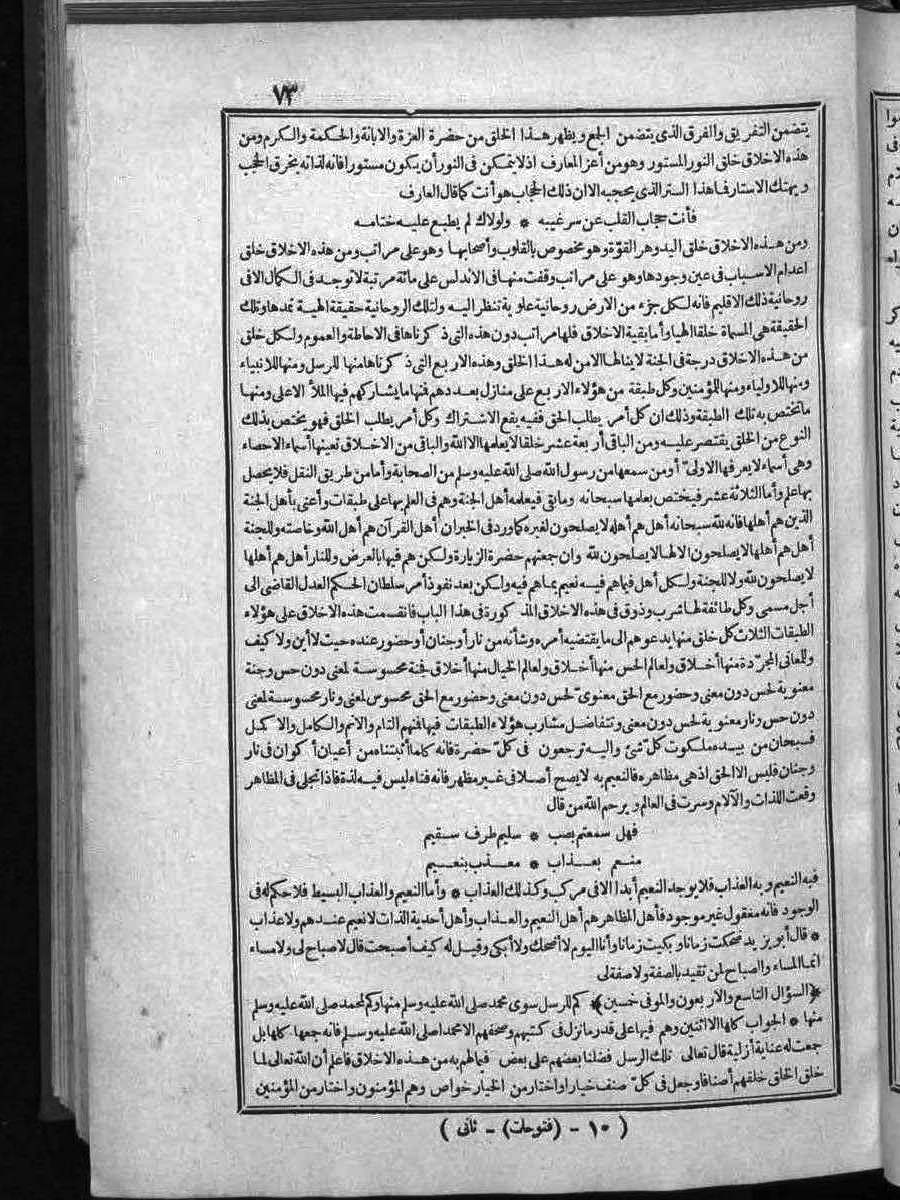 ٧٣
يتضمن التفريق والفرق الذى يتضمن الجمع ويظهر هذا الخلق من حضرة العزة والابانة والحكمة والكرم ومن
هذه الاخلاق خلق النور المستور وهو من أعز المعارف اذ لا يتمكن فى النور أن يكون مستورا فانه لذاته يخرق الحجب
ويهتك الاستار فما هذا الستر الذى يحجبه الا ان ذلك الحجاب هو أنت كما قال العارف
فأنت حجاب القلب عن سر غيبه * ولولاك لم يطبع عليه ختامه
ومن هذه الاخلاق خلق اليد وهو القوة وهو مخصوص بالقلوب وأصحابها وهو على مراتب ومن هذه الاخلاق خلق
اعدام الاسباب فى عين وجودها وهو على مراتب وقفت منها فى الاندلس على مائة مرتبة لا توجد فى الكمال الا فى
روحانية ذلك الاقليم فانه لكل جزء من الارض روحانية علوية تنظر اليه ولتلك الروحانية حقيقة الهية تمدها وتلك
الحقيقة هى المسماة خلقا الهيا وأما بقية الاخلاق فلها مراتب دون هذه التى ذكرناها فى الاحاطة والعموم ولكل خلق
من هذه الاخلاق درجة فى الجنة لا ينالها الا من له هذا الخلق وهذه الاربع التى ذكرناها منها للرسل ومنها للانبياء
ومنها للاولياء ومنها للمؤمنين وكل طبقة من هؤلاء الاربع على منازل بعددهم فنها ما يشاركهم فيها الملأ الاعلى ومنها
ما تختص به تلك الطبقة وذلك ان كل أمر يطلب الحق ففيه يقع الاشتراك وكل أمر يطلب الخلق فهو يختص بذلك
النوع من الخلق يقتصر عليه ومن الباقى أربعة عشر خلقا لا يعلمها الا الله والباقى من الاخلاق تعينها أسماء الاحصاء
وهى أسماء لا يعرفها الا ولى أو من سمعها من رسول الله صلى الله عليه وسلم من الصحابة وأما من طريق النقل فلا يحصل
بها علم وأما الثلاثة عشر فيختص بعلمها سبحانه وما بقى فيعلمه أهل الجنة وهم فى العلم بها على طبقات وأعنى بأهل الجنة
الذين هم أهلها فانه لله سبحانه أهل هم أهله لا يصلحون لغيره كما ورد فى الخبر ان أهل القرآن هم أهل الله وخاصته وللجنة
أهل هم أهلها لا يصلحون الا لها لا يصلحون لله وان جمعتهم حضرة الزيارة ولكن هم فيها بالعرض وللنار أهل هم أهلها
لا يصلحون لله ولا للجنة ولكل أهل فيما هم فيه نعيم بما هم فيه ولكن بعد نفوذ أمر سلطان الحكم العدل القاضى الى
أجل مسمى وكل طائفة لها شرب وذوق فى هذه الاخلاق المذكورة فى هذا الباب فانقسمت هذه الاخلاق على هؤلاء
الطبقات الثلاث كل خلق منها يدعوهم الى ما يقتضيه أمره وشأنه من نار أو جنان أو حضور عنده حيث لا أين ولا كيف
وللمعانى المجردة منها أخلاق ولعالم الحس منها أخلاق ولعالم الخيال منها أخلاق فجنة محسوسة لمعنى دون حس وجنة
معنوية لحس دون معنى وحضور مع الحق معنوى لحس دون معنى وحضور مع الحق محسوس لمعنى ونار محسوسة لمعنى
دون حس ونار معنوية لحس دون معنى وتتفاضل مشارب هؤلاء الطبقات فيها فمنهم التام والاتم والكامل والاكمل
فسبحان من بيده ملكوت كل شئ واليه ترجعون فى كل حضرة فانه كلما أثبتناه من أعيان أكوان فى نار
وجنان فليس الا الحق اذ هى مظاهره فالنعيم به لا يصح أصلا فى غير مظهر فانه فناء ليس فيه لذة فاذا تجلى فى المظاهر
وقعت اللذات والآلام وسرت فى العالم ويرحم الله من قال
فهل سمعتم بصب * سليم طرف سقيم
منعم بعذاب * معذب بنعيم
فبه النعيم وبه العذاب فلا يوجد النعيم أبدا الا فى مركب وكذلك العذاب * وأما النعيم والعذاب البسيط فلا حكم له فى
الوجود فانه معقول غير موجود فأهل المظاهر هم أهل النعيم والعذاب وأهل أحدية الذات لا نعيم عندهم ولا عذاب
* قال أبو يزيد ضحكت زمانا وبكيت زمانا وأنا اليوم لا أضحك ولا أبكى وقيل له كيف أصبحت قال لا صباح لى ولا مساء
انما المساء والصباح لمن تقيد بالصفة ولا صفة لى
﴿السؤال التاسع والاربعون والموفى خمسين﴾ كم للرسل سوى محمد صلى الله عليه وسلم منها وكم لمحمد صلى الله عليه وسلم
منها * الجواب كلها الا اثنين وهم فيها على قدر ما نزل فى كتبهم وصحفهم الا محمدا صلى الله عليه وسلم فانه جمعها كلها بل
جمعت له عناية أزلية قال تعالى تلك الرسل فضلنا بعضهم على بعض فيما لهم به من هذه الاخلاق فاعلم أن الله تعالى لما
خلق الخلق خلقهم أصنافا وجعل فى كل صنف خيارا واختار من الخيار خواص وهم المؤمنون واختار من المؤمنين
( ١٠ - (فتوحات) - ثانى )